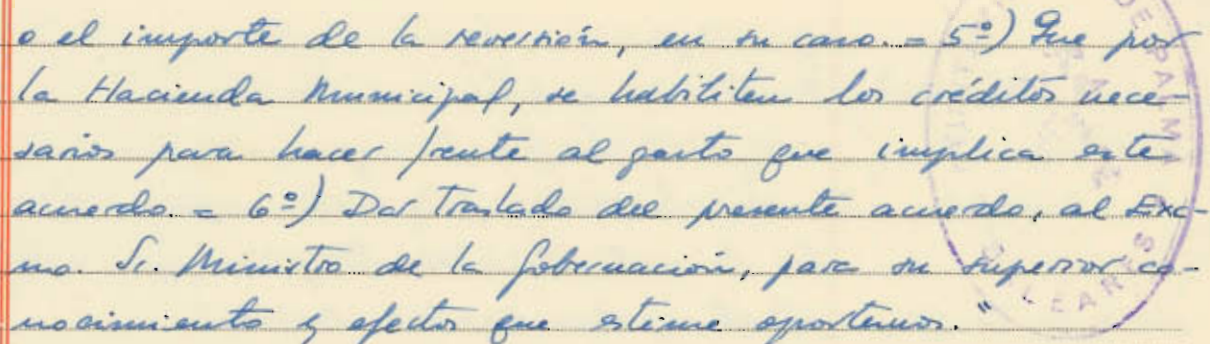 o el importe de la reversión, en su caso. = 5º) Que por
la Hacienda Municipal, se habiliten los créditos nece-
sarios para hacer frente al gasto que implica este
acuerdo. = 6º) Dar Traslado del presente acuerdo, al Exc-
mo. Sr. Ministro de la Gobernación, para su superior co-
nocimiento y efectos que estime oportunos. "
DE PALMA
BALEARES